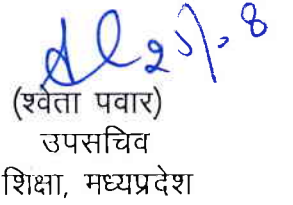 (श्वेता पवार)
उपसचिव
शिक्षा, मध्यप्रदेश